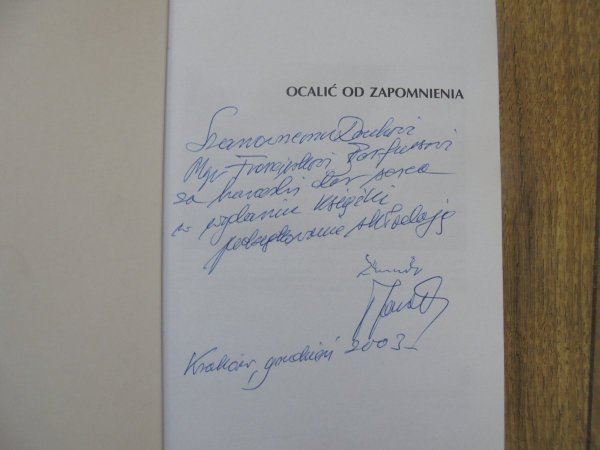 OCALIĆ OD ZAPOMNIENIA
Szanownemu Druhowi
Mgr Franciszkowi
za harcerski dar serca
w wydaniu Książki
podziękowanie składają
Kraków, grudzień 2003